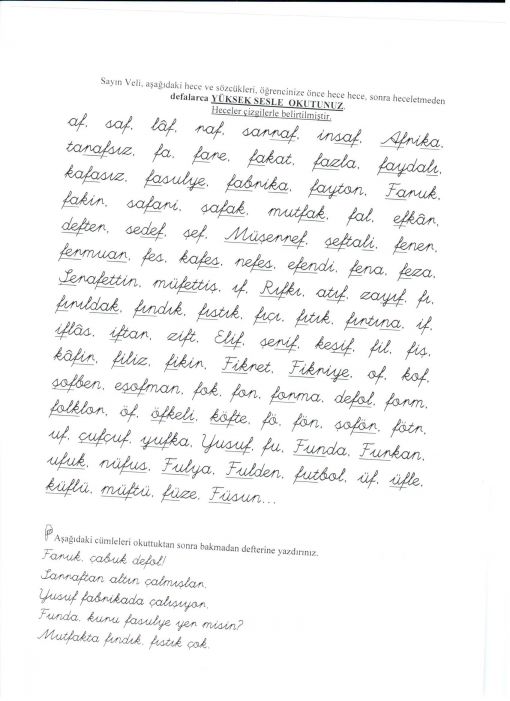 Sayın Veli, aşağıdaki hece ve sözcükleri, öğrencinize önce hece hece, sonra heceletmeden
defalarca YÜKSEK SESLE OKUTUNUZ.
Heceler çizgilerle belirtilmiştir.
af, saf, lâf, raf, sarraf, insaf, Afrika,
tarafsız, fa, fare, fakat, fazla, faydalı,
kafasız, fasulye, fabrika, fayton, Faruk,
fakir, safari, şafak, mutfak, fal, efkâr,
defter, sedef, şef, Müşerref, şeftali, fener,
fermuar, fes, kafes, nefes, efendi, fena, feza,
Şerafettin, müfettiş, if, Rıfkı, atıf, zayıf, fı,
fırıldak, fındık, fıstık, fıçı, fıtık, fırtına, if,
iflâs, iftar, zift, Elif, şerif, keşif, fil, fiş,
kâfir, filiz, fikir, Fikret, Fikriye, of, kof,
şofben, eşofman, fok, fon, forma, defol, form,
folklor, öf, öfkeli, köfte, fö, fön, şoför, fötr,
uf, çufçuf, yufka, Yusuf, fu, Funda, Furkan,
ufuk, nüfus, Fulya, Fulden, futbol, üf, üfle,
küflü, müftü, füze, Füsun...
Aşağıdaki cümleleri okuttuktan sonra bakmadan defterine yazdırınız.
Faruk, çabuk defol!
Sarraftan altın çalmışlar.
Yusuf fabrikada çalışıyor.
Funda, kuru fasulye yer misin?
Mutfakta fındık, fıstık çok.